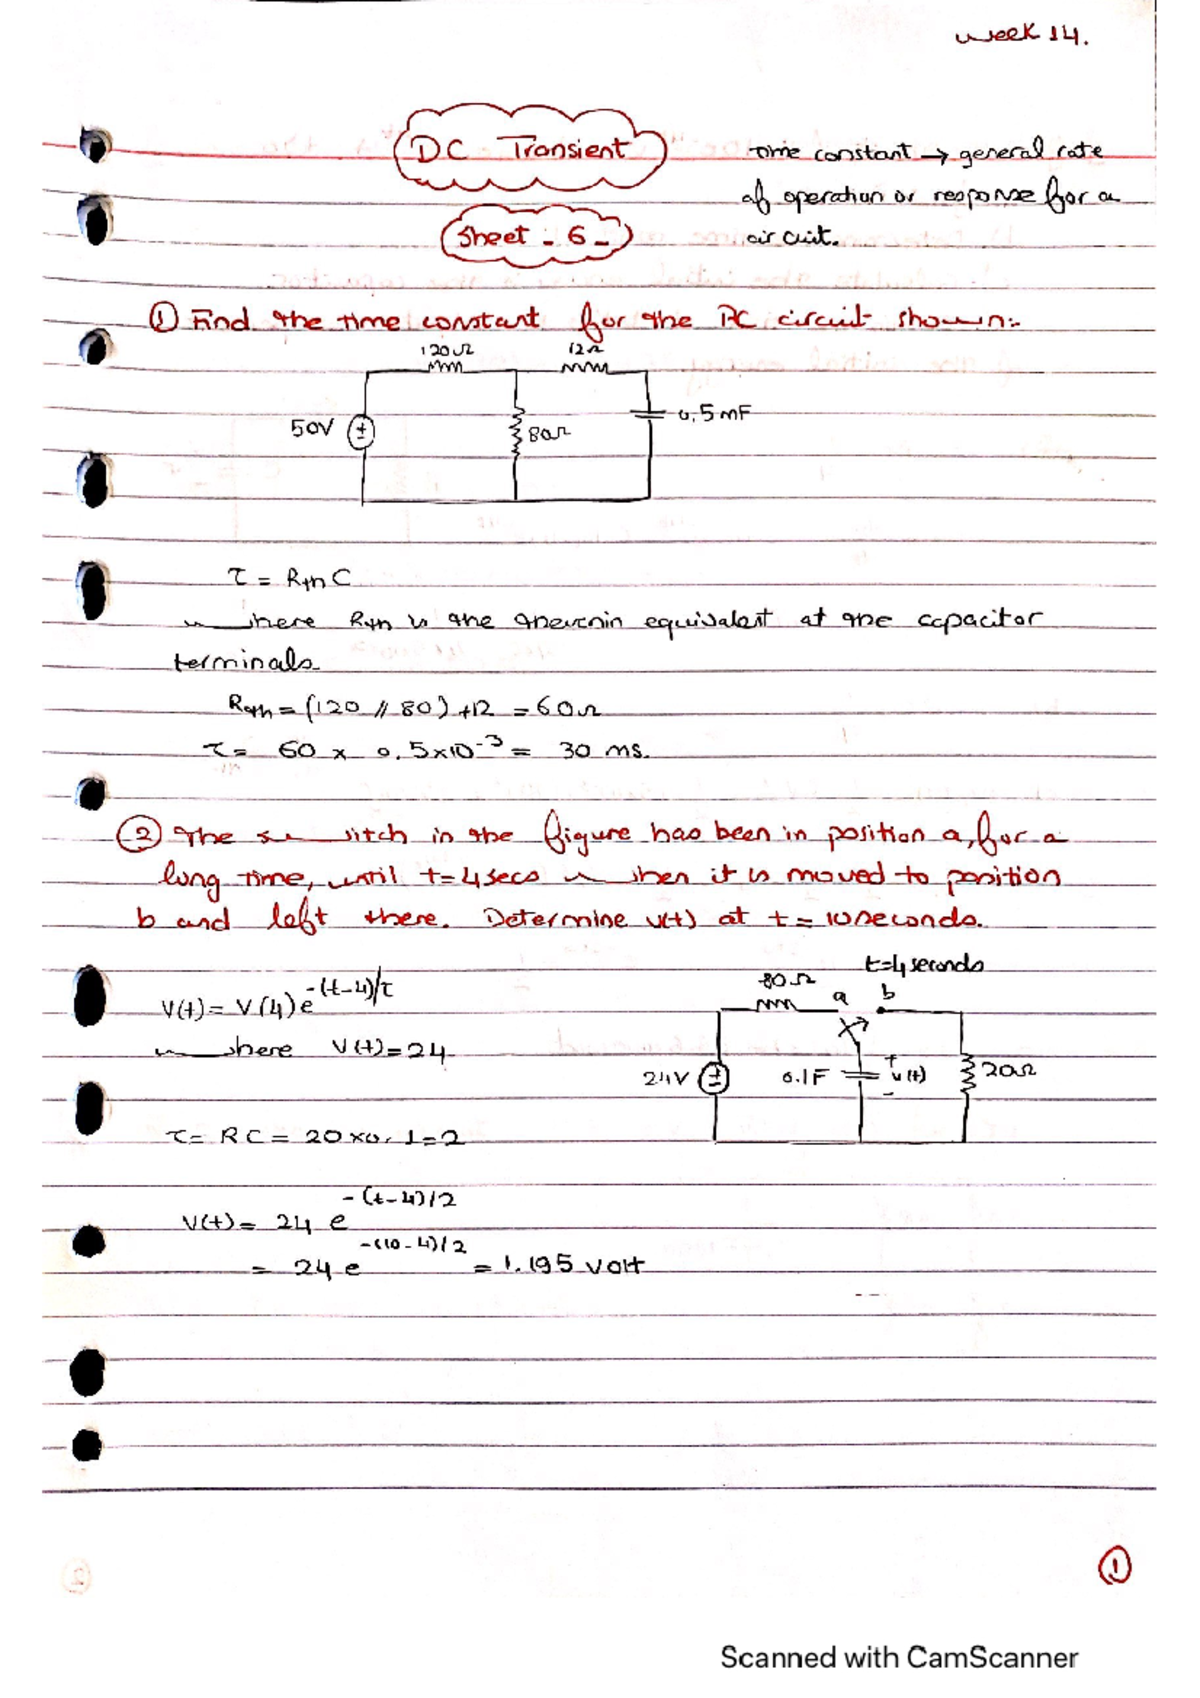 week 14.
DC Transient
time constant → general rate
of operation or response for a
circuit.
Sheet - 6 -
① Find the time constant for the RC circuit shown:-
120Ω
12Ω
50V
80Ω
0,5mF
τ = Rth C
where Rth is the thevenin equivalent at the capacitor
terminals
Rth = (120 // 80) +12 = 60Ω
τ = 60 x 0.5x10⁻³ = 30 ms.
② The switch in the figure has been in position a, for a
long time, until t=4secs when it is moved to position
b and left there. Determine v(t) at t = 10 seconds.
t=4 seconds
80Ω
a
b
V(t) = V(4) e^-(t-4)/τ
where V(t) = 24
24V
0.1F
+
v(t)
-
20Ω
τ = RC = 20 x 0.1 = 2
V(t) = 24 e^-(t-4)/2
= 24 e^-(10-4)/2 = 1.195 volt
①
Scanned with CamScanner